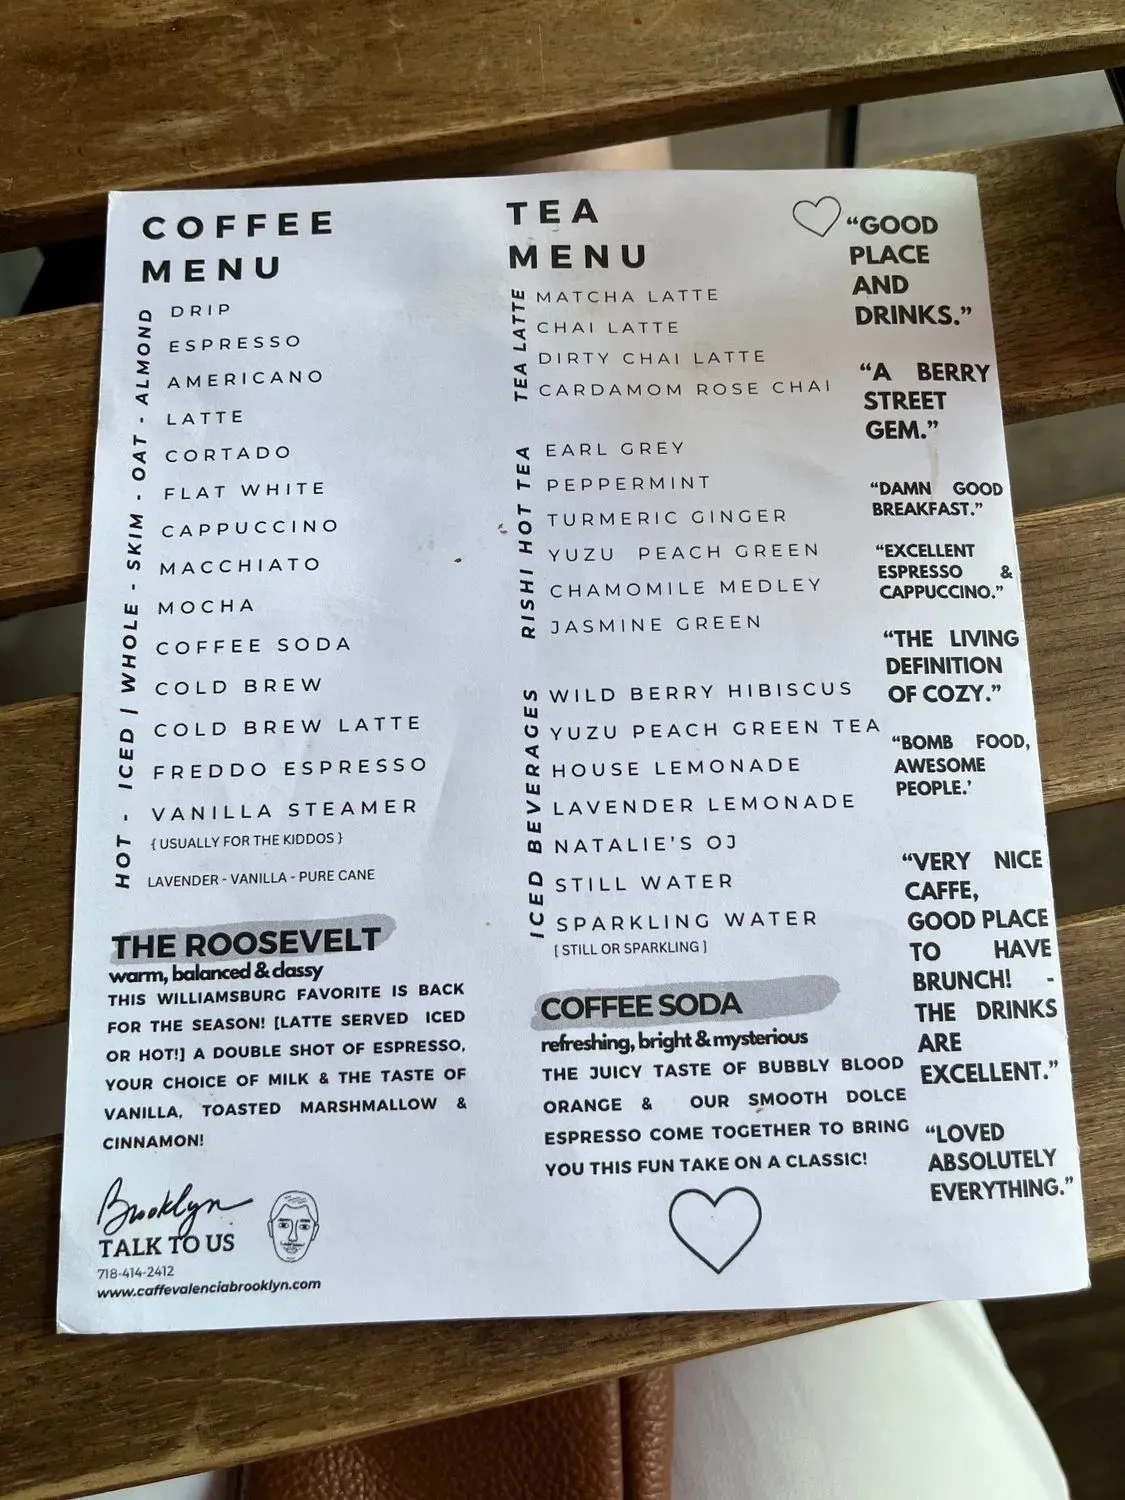 COFFEE
MENU
HOT - ICED | WHOLE - SKIM - OAT - ALMOND
DRIP
ESPRESSO
AMERICANO
LATTE
CORTADO
FLAT WHITE
CAPPUCCINO
MACCHIATO
MOCHA
COFFEE SODA
COLD BREW
COLD BREW LATTE
FREDDO ESPRESSO
VANILLA STEAMER
{ USUALLY FOR THE KIDDOS }
LAVENDER - VANILLA - PURE CANE
THE ROOSEVELT
warm, balanced & classy
THIS WILLIAMSBURG FAVORITE IS BACK
FOR THE SEASON! [LATTE SERVED ICED
OR HOT!] A DOUBLE SHOT OF ESPRESSO,
YOUR CHOICE OF MILK & THE TASTE OF
VANILLA, TOASTED MARSHMALLOW &
CINNAMON!
Brooklyn
TALK TO US
718-414-2412
www.caffevalenciabrooklyn.com
TEA
MENU
TEA LATTE
MATCHA LATTE
CHAI LATTE
DIRTY CHAI LATTE
CARDAMOM ROSE CHAI
RISHI HOT TEA
EARL GREY
PEPPERMINT
TURMERIC GINGER
YUZU PEACH GREEN
CHAMOMILE MEDLEY
JASMINE GREEN
ICED BEVERAGES
WILD BERRY HIBISCUS
YUZU PEACH GREEN TEA
HOUSE LEMONADE
LAVENDER LEMONADE
NATALIE'S OJ
STILL WATER
SPARKLING WATER
[ STILL OR SPARKLING ]
COFFEE SODA
refreshing, bright & mysterious
THE JUICY TASTE OF BUBBLY BLOOD
ORANGE & OUR SMOOTH DOLCE
ESPRESSO COME TOGETHER TO BRING
YOU THIS FUN TAKE ON A CLASSIC!
“GOOD
PLACE
AND
DRINKS.”
“A BERRY
STREET
GEM.”
“DAMN GOOD
BREAKFAST.”
“EXCELLENT
ESPRESSO &
CAPPUCCINO.”
“THE LIVING
DEFINITION
OF COZY.”
“BOMB FOOD,
AWESOME
PEOPLE.’
“VERY NICE
CAFFE,
GOOD PLACE
TO HAVE
BRUNCH! -
THE DRINKS
ARE
EXCELLENT.”
“LOVED
ABSOLUTELY
EVERYTHING.”